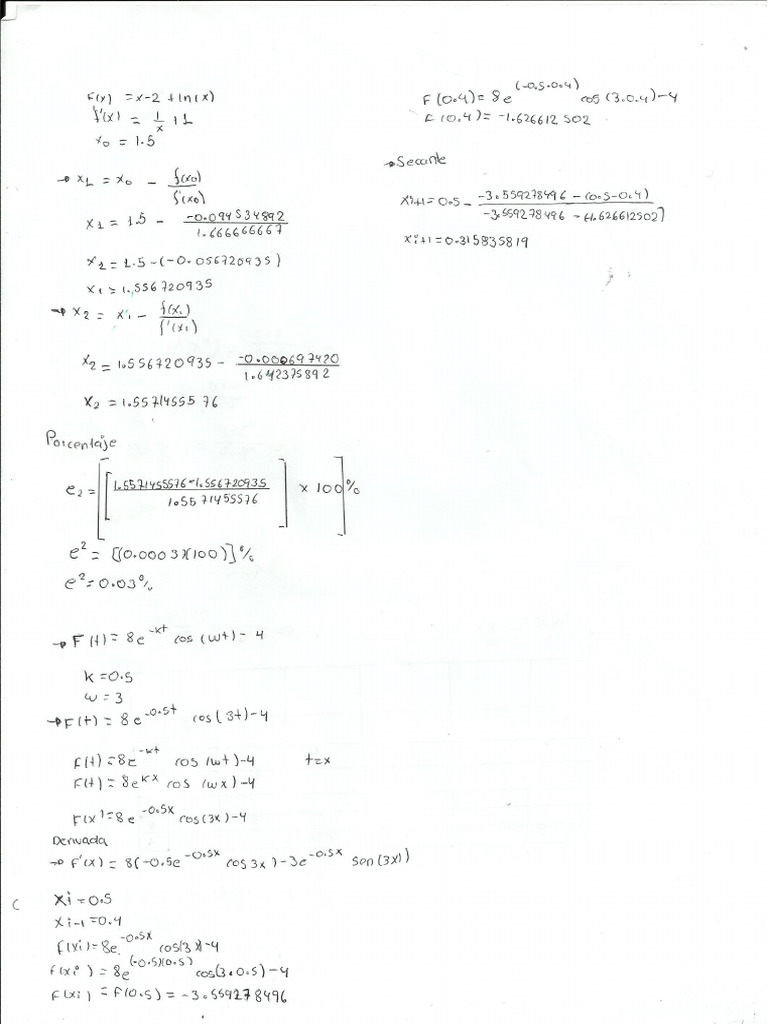 F(x) = x-2 + ln(x)
f'(x) = 1/x + 1
x0 = 1.5
→ x1 = x0 - f(x0)/f'(x0)
x1 = 1.5 - -0.094534892/1.666666667
x1 = 1.5-(-0.056720935)
x1 = 1.556720935
→ x2 = x1 - f(x1)/f'(x1)
x2 = 1.556720935 - -0.000697420/1.642375892
x2 = 1.5571455576
Porcentaje
e2 = [[1.5571455576-1.556720935/1.5571455576] x 100]%
e² = [(0.0003)(100)]%
e² = 0.03%
→ F(t) = 8e^-kt cos(wt) - 4
k = 0.5
w = 3
→ F(t) = 8e^-0.5t cos(3t)-4
F(t) = 8e^-kt cos(wt)-4 t=x
F(t) = 8e^kx cos(wx)-4
F(x) = 8e^-0.5x cos(3x)-4
Derivada
→ F'(x) = 8(-0.5e^-0.5x cos3x)-3e^-0.5x sen(3x))
C xi = 0.5
xi-1 = 0.4
f(xi) = 8e^-0.5x cos(3x)-4
f(xi) = 8e^(-0.5)(0.5) cos(3.0.5)-4
F(xi) = F(0.5) = -3.559278496
F(0.4) = 8e^(-0.5.0.4) cos(3.0.4)-4
F(0.4) = -1.626612502
→ Secante
xi+1 = 0.5 - -3.559278496 - (0.5-0.4)/-3.559278496 - (-1.626612502)
xi+1 = 0.315835819